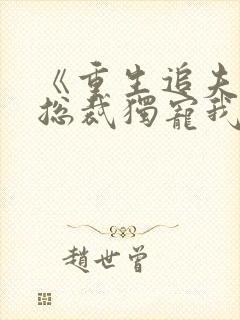 《重生追夫
总裁獨寵我
趙世曾